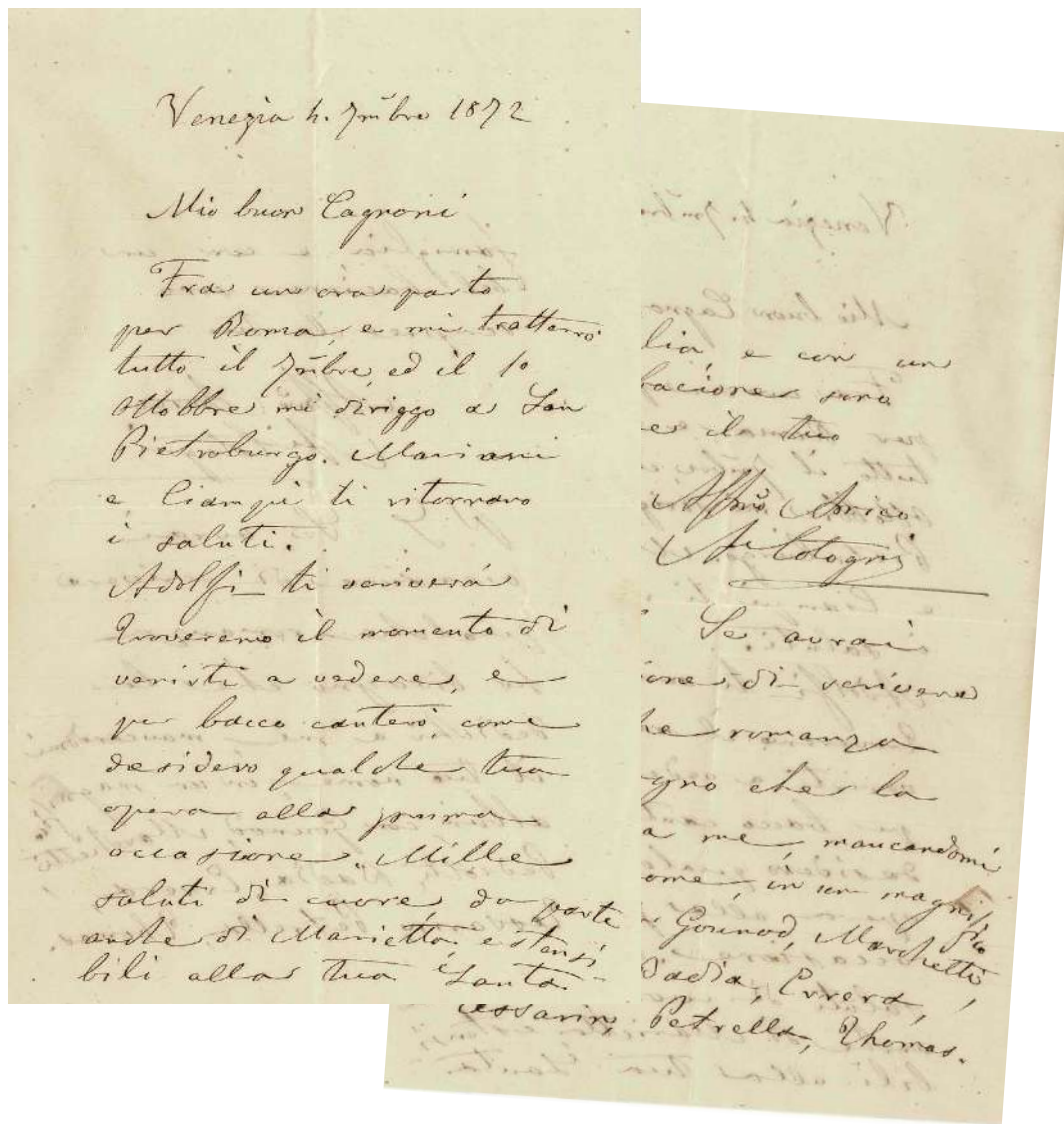 Venezia 4. 7mbre 1872
Mio buon Cagnoni
Fra un'ora parto
per Roma, e mi tratterrò
tutto il 7mbre, ed il 1º
Ottobbre mi diriggo a San
Pietroburgo. Mariani
e Ciampi ti ritornano
i saluti.
Adolfi ti scriverá
Troveremo il momento di
venirti a vedere, e
per bacco canterò, come
desidero qualche tua
opera alla prima
occasione. Mille
saluti di cuore, da parte
anche di Marietta, estensi-
bili alla tua Santa
lia, e con un
bacione sono
e il tuo
Affmo Amico
A. Cotogni
Se avrai
ione di scrivere
he romanza
gno che la
a me mancandomi
ome, in un magnifico
Gounod, Marchetti,
Badia, Errera,
essarin, Petrella, Thomas.